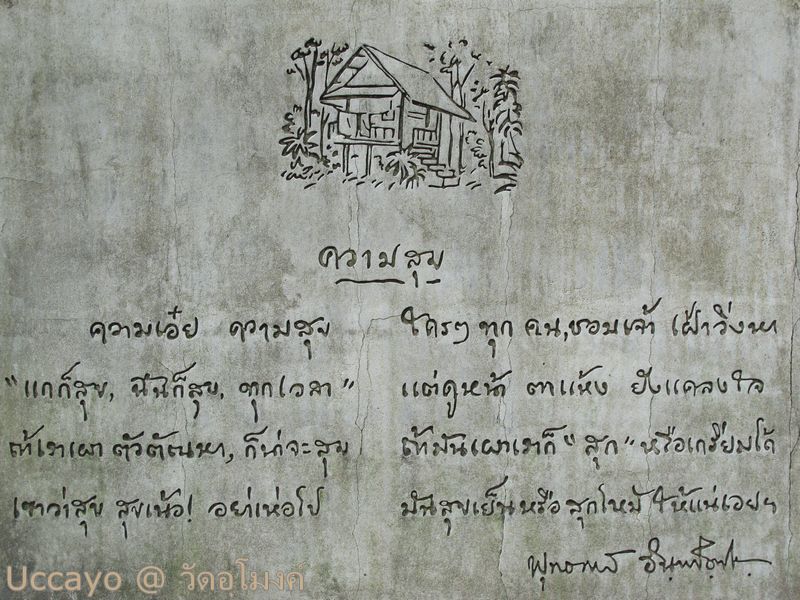 ความสุข
ความเอ๋ย ความสุข ใครๆ ทุกคน, ชอบเจ้า เฝ้าวิ่งหา
"แกก็สุข, ฉันก็สุข, ทุกเวลา" แต่ดูหน้า ตาแห้ง ยังแคลงใจ
ถ้าเราเผา ตัวตัณหา, ก็น่าจะสุข ถ้ามันเผาเราก็ "สุก" หรือเกรียมได้
เขาว่าสุข สุขเน้อ! อย่าเห่อไป มันสุขเย็นหรือสุกไหม้ ให้แน่เอยฯ
พุทธทาส อินฺทปญฺโญ
Uccayo @ วัดอุโมงค์